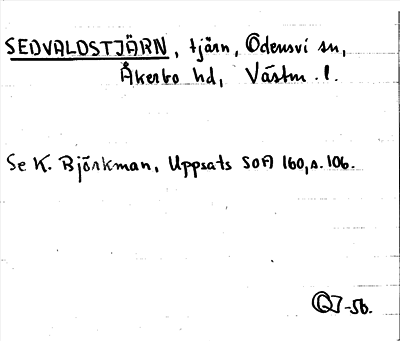 SEDVALDSTJÄRN, tjärn, Odensvi sn,
Åkerbo hd, Västm. l.
Se K. Björkman, Uppsats SOA 160, s. 106.
OJ-56.